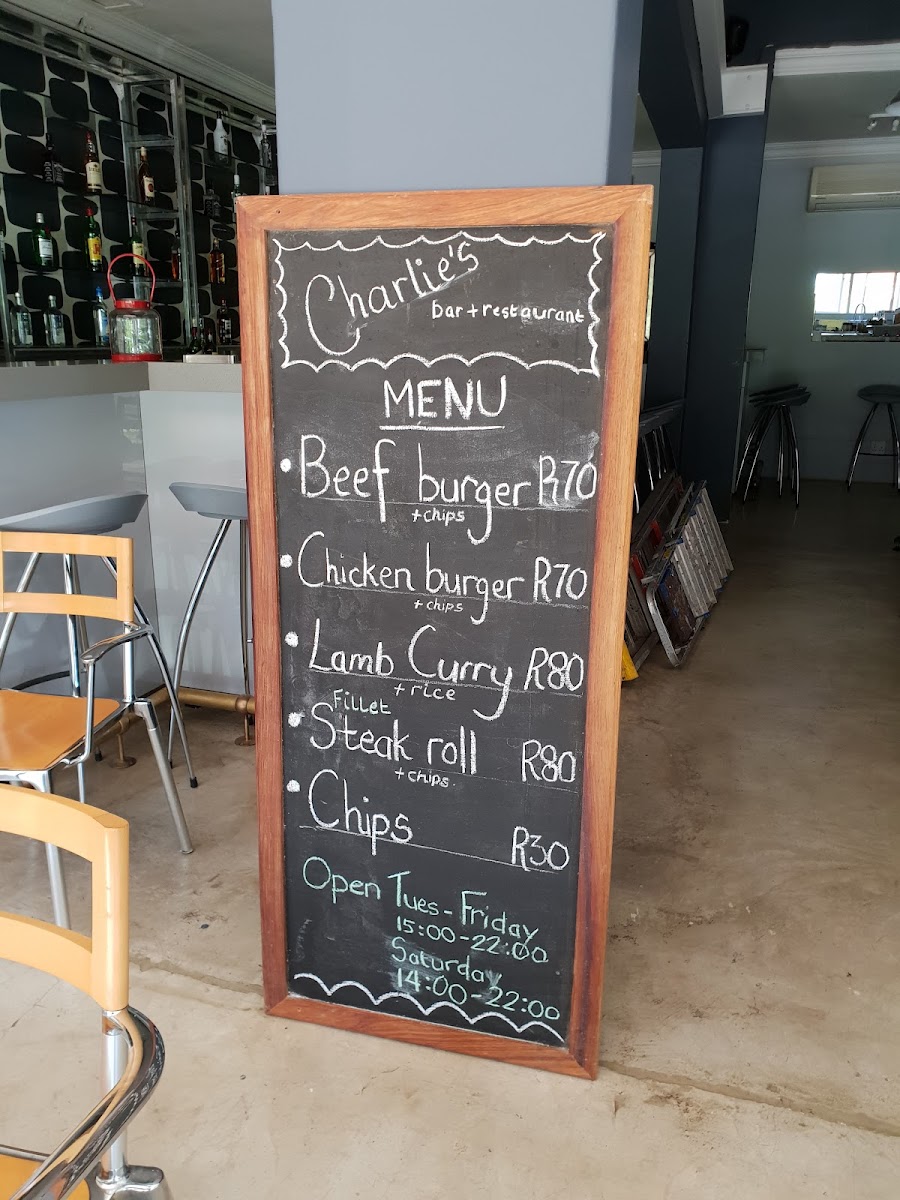 Charlie's
bar + restaurant
MENU
• Beef burger R70
+ chips
• Chicken burger R70
+ chips
• Lamb Curry R80
+ rice
Fillet
• Steak roll R80
+ chips.
• Chips R30
Open Tues - Friday
15:00 - 22:00
Saturday
14:00 - 22:00